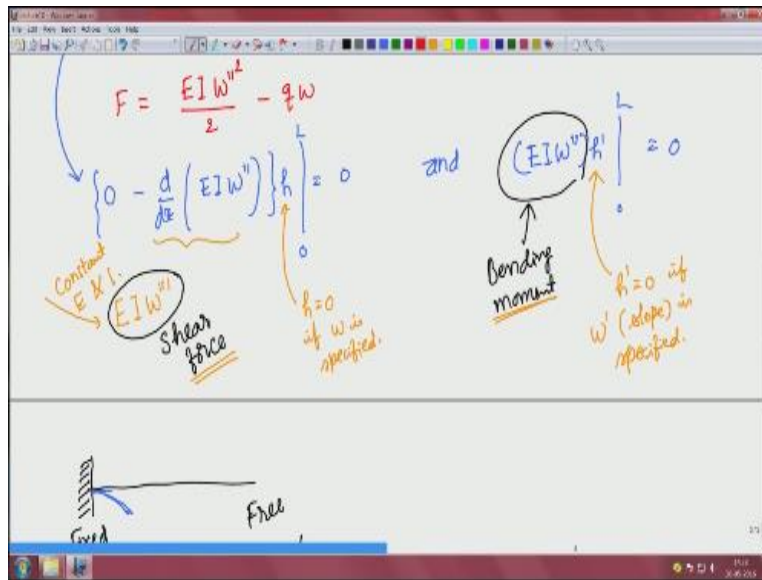 File Edit View Insert Actions Tools Help
F = EIw''² / 2 - qw
{0 - d/dx (EIw'')} h |₀ᴸ = 0 and (EIw'') h' |₀ᴸ = 0
Constant
E & I.
EIw'''
Shear
force
h=0
if w is
specified.
Bending
moment
h'=0 if
w' (slope) is
specified.
Fixed
Free